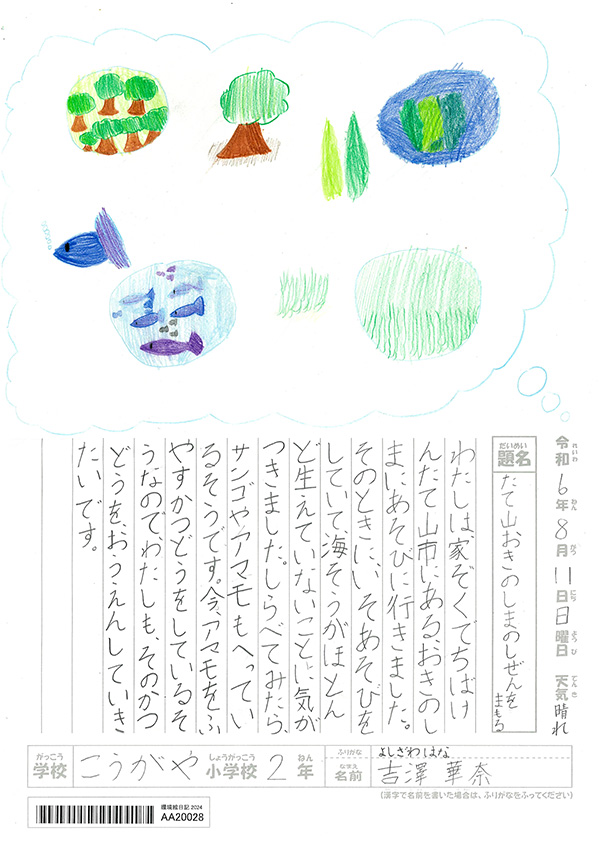 令和6年8月11日日曜日 天気晴れ
れいわ ねん がつ にち ようび てんき
だいめい
題名
たて山おきのしまのしぜんを
まもる
わたしは、家ぞくでちばけ
んたて山市にある、おきのし
まにあそびに行きました。
そのときに、いそあそびを
していて、海そうがほとん
ど生えていないことに気が
つきました。しらべてみたら、
サンゴやアマモもへってい
るそうです。今、アマモをふ
やすかつどうをしているそ
うなので、わたしも、そのかつ
どうを、おうえんしていき
たいです。
がっこう しょうがっこう ねん
学校 こうがや小学校 2年
ふりがな よしざわ はな
なまえ
名前 吉澤 華奈
(漢字で名前を書いた場合は、ふりがなをふってください)
環境絵日記 2024
AA20028